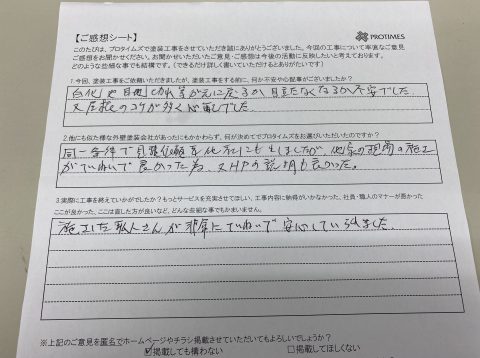 【ご感想シート】
PROTIMES
このたびは、プロタイムズで塗装工事をさせていただき誠にありがとうございました。今回の工事について率直なご意見
ご感想をお聞かせください。お聞かせいただいたご意見・ご感想は今後の活動に反映したいと考えております。
どのような些細な事でも結構です。（できるだけ詳しく書いていただけるとありがたいです）
1.今回、塗装工事をご依頼いただきましたが、塗装工事をする前に、何か不安や心配事がございましたか？
白化や目地の われ等がえに戻るか 目立たなくなるか不安でした
又足場のコワが多く心配でした。
2.他にも似た様な外壁塗装会社があったにもかかわらず、何が決めてでプロタイムズをお選びいただいたのですか？
同一条件で見積依頼を他社にもしましたが、他家の現場の施工
がていねいで良かった為、又HPの説明も良かった。
3.実際に工事を終えていかがでしたか？もっとサービスを充実させてほしい、工事内容に納得がいかなかった、社員・職人のマナーが悪かった
ここが良かった、ここは直した方が良いなど、どんな些細な事でもかまいません。
施工した職人さんが非常にていねいで安心していられました。
※上記のご意見を匿名でホームページやチラシ掲載させていただいてもよろしいでしょうか？
☑掲載しても構わない □掲載してほしくない